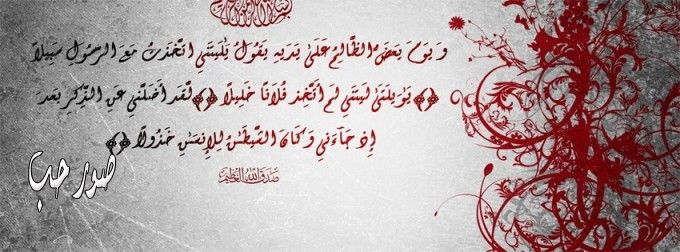 وَيَوْمَ يَعَضُّ الظَّالِمُ عَلَىٰ يَدَيْهِ يَقُولُ يَٰلَيْتَنِي اتَّخَذْتُ مَعَ الرَّسُولِ سَبِيلًا
﴿﴾ يَٰوَيْلَتَىٰ لَيْتَنِي لَمْ أَتَّخِذْ فُلَانًا خَلِيلًا ﴿﴾ لَّقَدْ أَضَلَّنِي عَنِ الذِّكْرِ بَعْدَ
إِذْ جَآءَنِي وَكَانَ الشَّيْطَٰنُ لِلْإِنسَٰنِ خَذُولًا ﴿﴾
صدق الله العظيم
صور حب